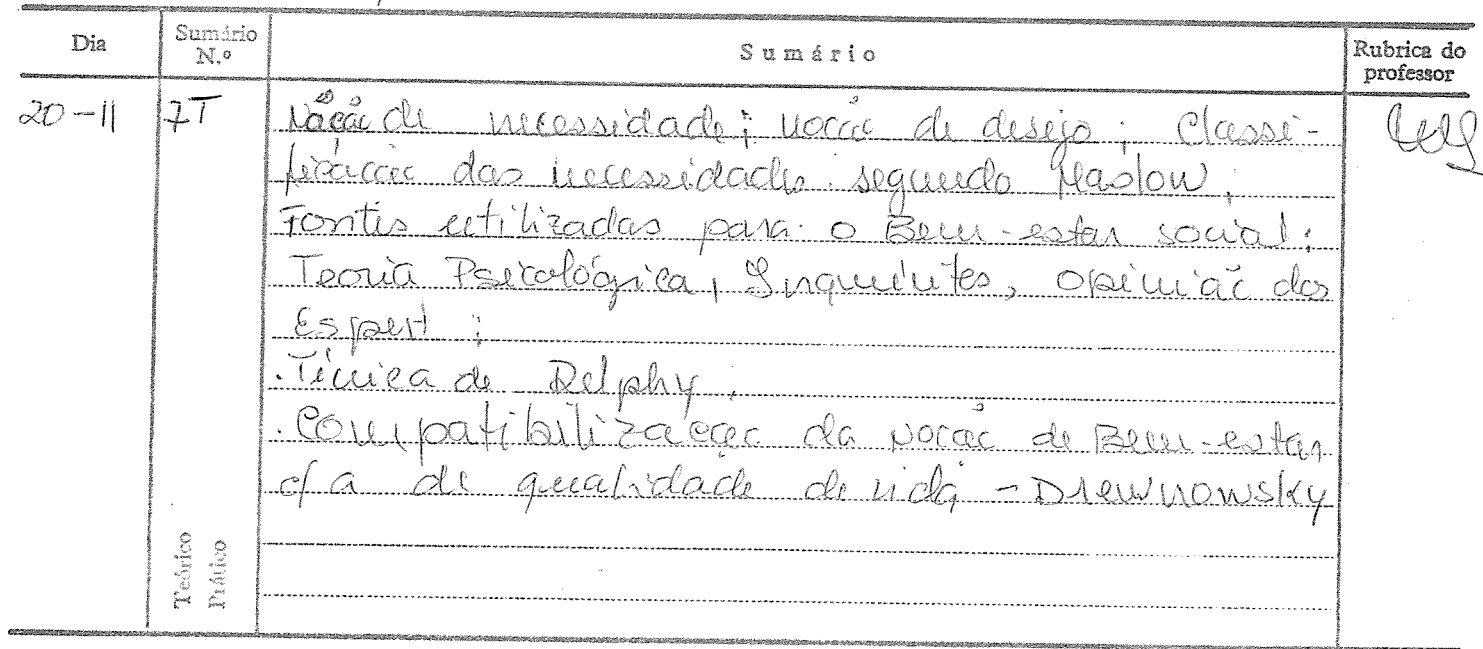 Dia Sumário N.º Sumário Rubrica do professor
20-11 7T Noção de necessidade; noção de desejo; Classi-
ficação das necessidades segundo Maslow;
Fontes utilizadas para o Bem-estar social:
Teoria Psicológica, Inquéritos, opinião dos
Espert;
.Técnica de Delphy.
.Compatibilização da noção de Bem-estar
c/ a de qualidade de vida - Drewnowsky
Teórico
Prático